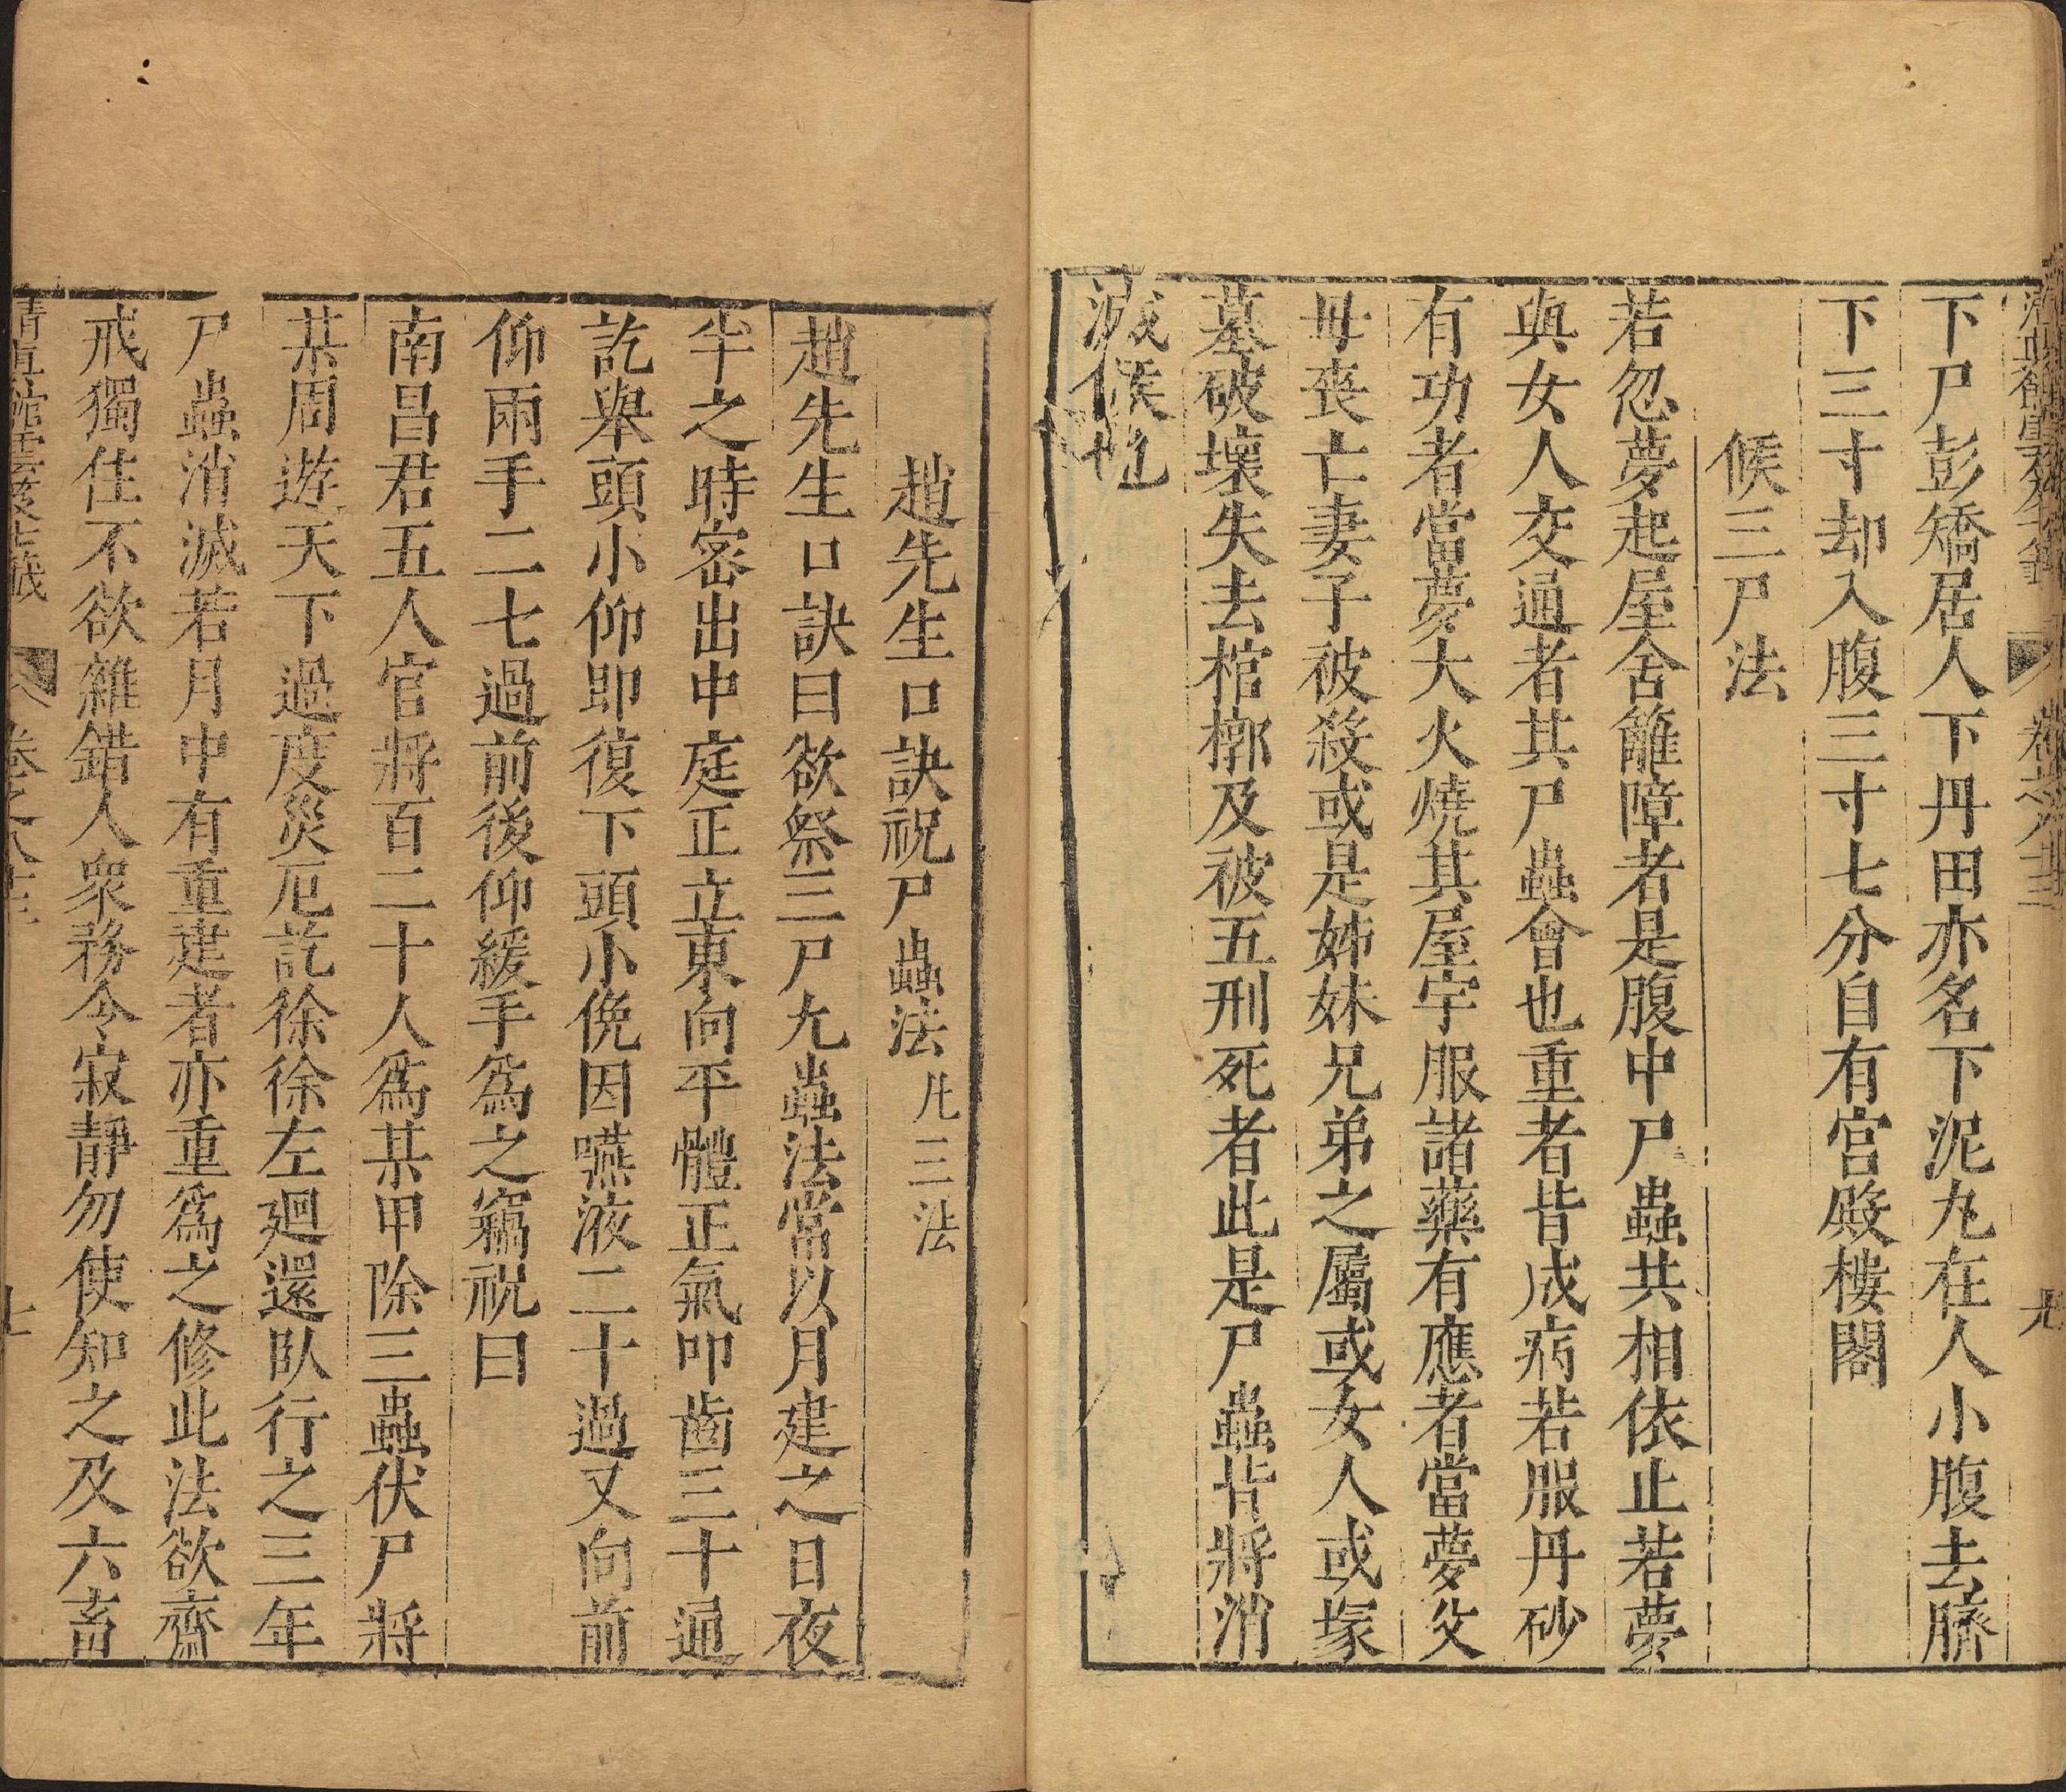 下尸彭矯居人下丹田亦名下泥丸在人小腹去臍
下三寸却入腹三寸七分自有宫殿樓閣
候三尸法
若忽夢起屋舍籬障者是腹中尸蟲共相依止若夢
與女人交通者其尸蟲會也重者皆成病若服丹砂
有功者當夢大火燒其屋宇服諸藥有應者當夢父
母喪亡妻子被殺或是姊妹兄弟之屬或女人或塚
墓破壞失去棺槨及被五刑死者此是尸蟲皆將消
滅候也
趙先生口訣祝尸蟲法凡三法
趙先生口訣曰欲祭三尸九蟲法常以月建之日夜
半之時密出中庭正立東向平體正氣叩齒三十通
訖舉頭小仰即復下頭小俛因嚥液二十過又向前
仰兩手二七過前後仰緩手爲之竊祝曰
南昌君五人官將百二十人爲某甲除三蟲伏尸將
某周遊天下過度災厄訖徐徐左廻還臥行之三年
尸蟲消滅若月中有重建者亦重爲之修此法欲齋
戒獨住不欲雜錯人衆務令寂靜勿使知之及六畜
清真館雲笈七籤 卷之八十三 七